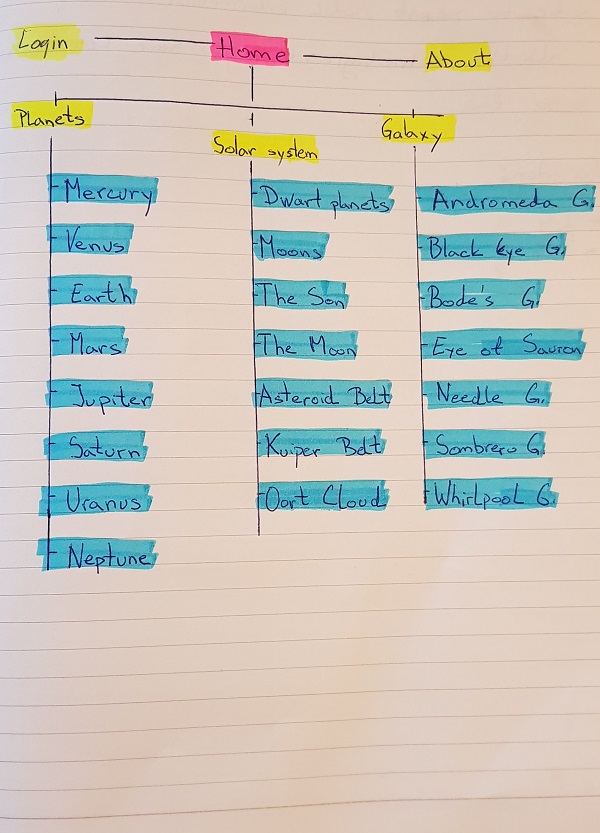 Login
Home
About
Planets
Solar system
Galaxy
Mercury
Venus
Earth
Mars
Jupiter
Saturn
Uranus
Neptune
Dwart planets
Moons
The Son
The Moon
Asteroid Belt
Kuiper Belt
Oort Cloud
Andromeda G.
Black Eye G.
Bode's G.
Eye of Sauron
Needle G.
Sombrero G.
Whirlpool G.